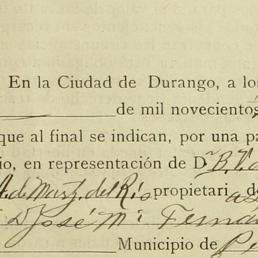 En la Ciudad de Durango, a los
de mil novecientos
que al final se indican, por una pa
io, en representación de D
A. de Martz. del Río propietari
D José Ma. Ferna
Municipio de